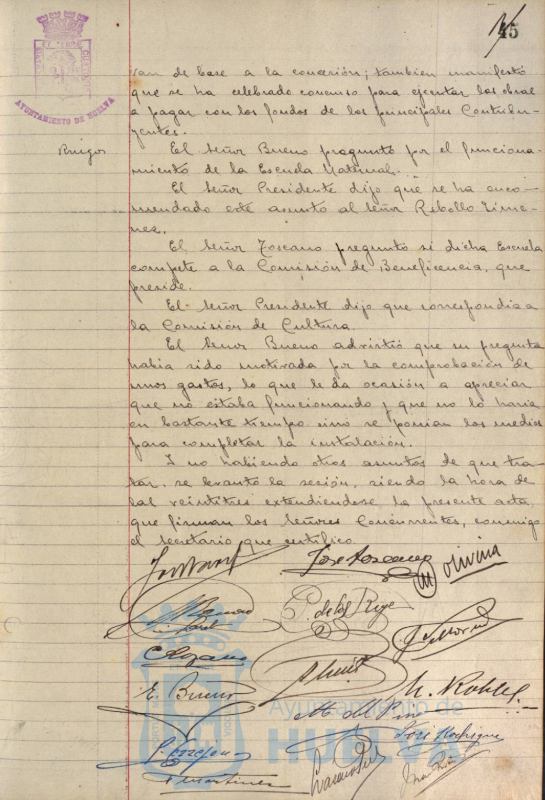 45
AYUNTAMIENTO DE HUELVA
van de base a la concesión; tambien manifestó
que se ha celebrado concurso para ejecutar las obras
a pagar con los fondos de los principales Contribu-
yentes.
Ruegos
El Señor Bueno preguntó por el funciona-
miento de la Escuela Maternal.
El Señor Presidente dijo que se ha enco-
mendado este asunto al Señor Rebollo Jime-
nez.
El Señor Toscano preguntó si dicha Escuela
compete a la Comisión de Beneficencia, que
preside.
El Señor Presidente dijo que correspondia a
la Comisión de Cultura.
El Señor Bueno advirtió que su pregunta
habia sido motivada por la comprobación de
unos gastos, lo que le da ocasión a apreciar
que no estaba funcionando y que no lo haria
en bastante tiempo sinó se ponian los medios
para completar la instalación.
I no habiendo otros asuntos de que tra-
tar, se levantó la sesión, siendo la hora de
las veintitres extendiendose la presente acta,
que firman los Señores Concurrentes, conmigo
el Secretario que certifico.
Jose Toscano
M Olivina
P. de los Reyes
E. Bueno
M. Robles
M. del Pino
José Rodriguez
F Martinez
Ayuntamiento de
HUELVA